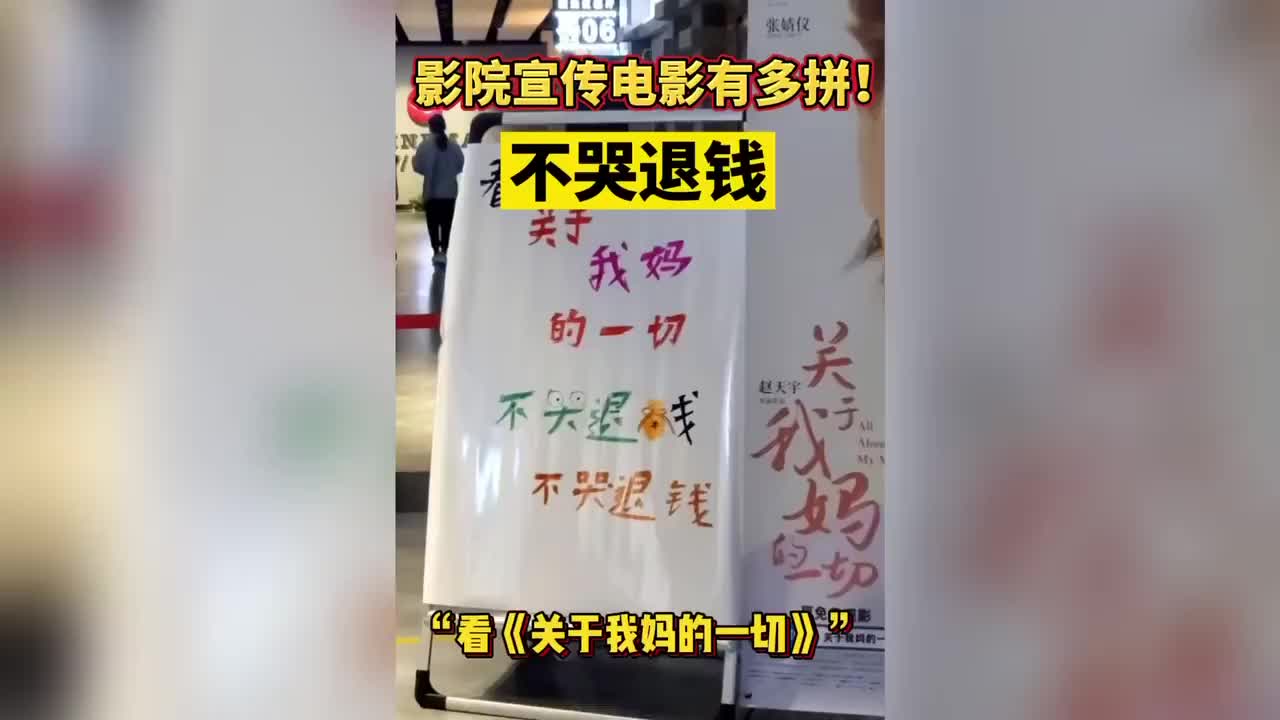 06
张婧仪
影院宣传电影有多拼！
不哭退钱
看
关于
我妈
的一切
不哭退钱
不哭退钱
赵天宇
关于
我妈
的一切
All
About
My M
关于我妈的一
“看《关于我妈的一切》”